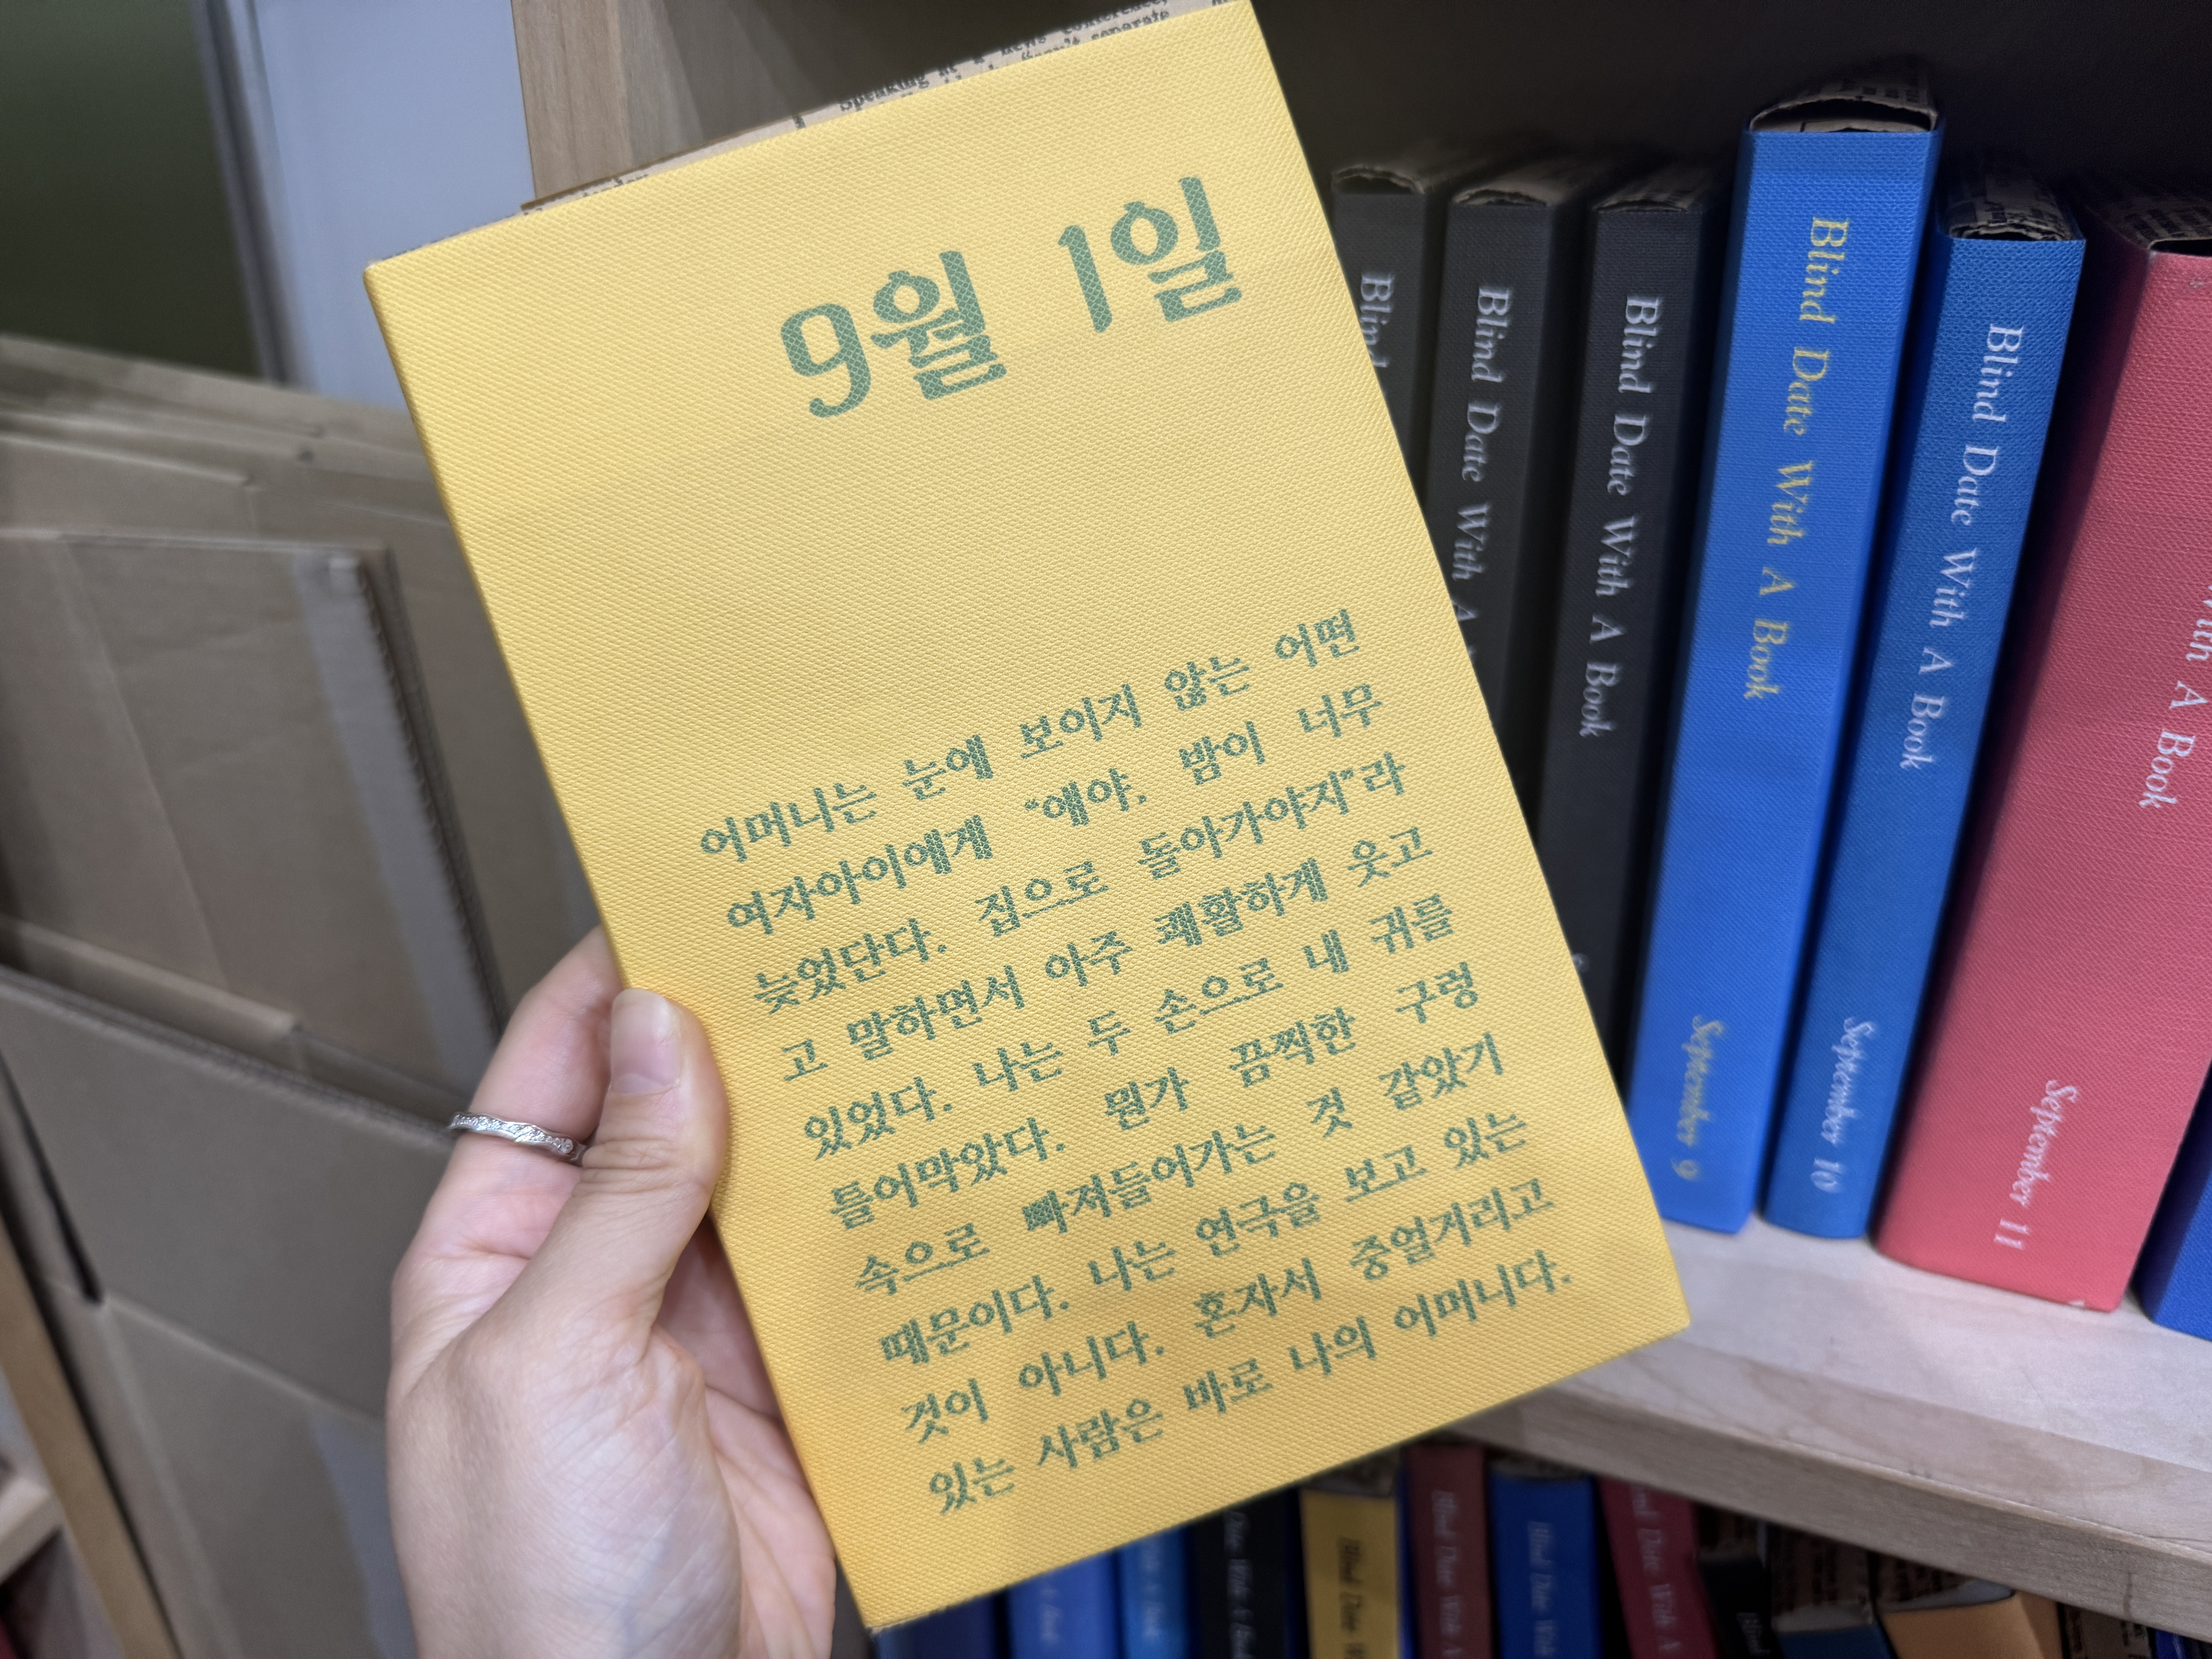 Speaking at a news conference,
separate
9월 1일
어머니는 눈에 보이지 않는 어떤
여자아이에게 “얘야, 밤이 너무
늦었단다. 집으로 돌아가야지”라
고 말하면서 아주 쾌활하게 웃고
있었다. 나는 두 손으로 내 귀를
틀어막았다. 뭔가 끔찍한 구렁
속으로 빠져들어가는 것 같았기
때문이다. 나는 연극을 보고 있는
것이 아니다. 혼자서 중얼거리고
있는 사람은 바로 나의 어머니다.
Blind
Blind Date With A
Blind Date With A Book
Blind Date With A Book
September 9
Blind Date With A Book
September 10
With A Book
September 11
Date With A Book
Blind Date W
Blind Date With A
Blind Date With
Date With A
Blind